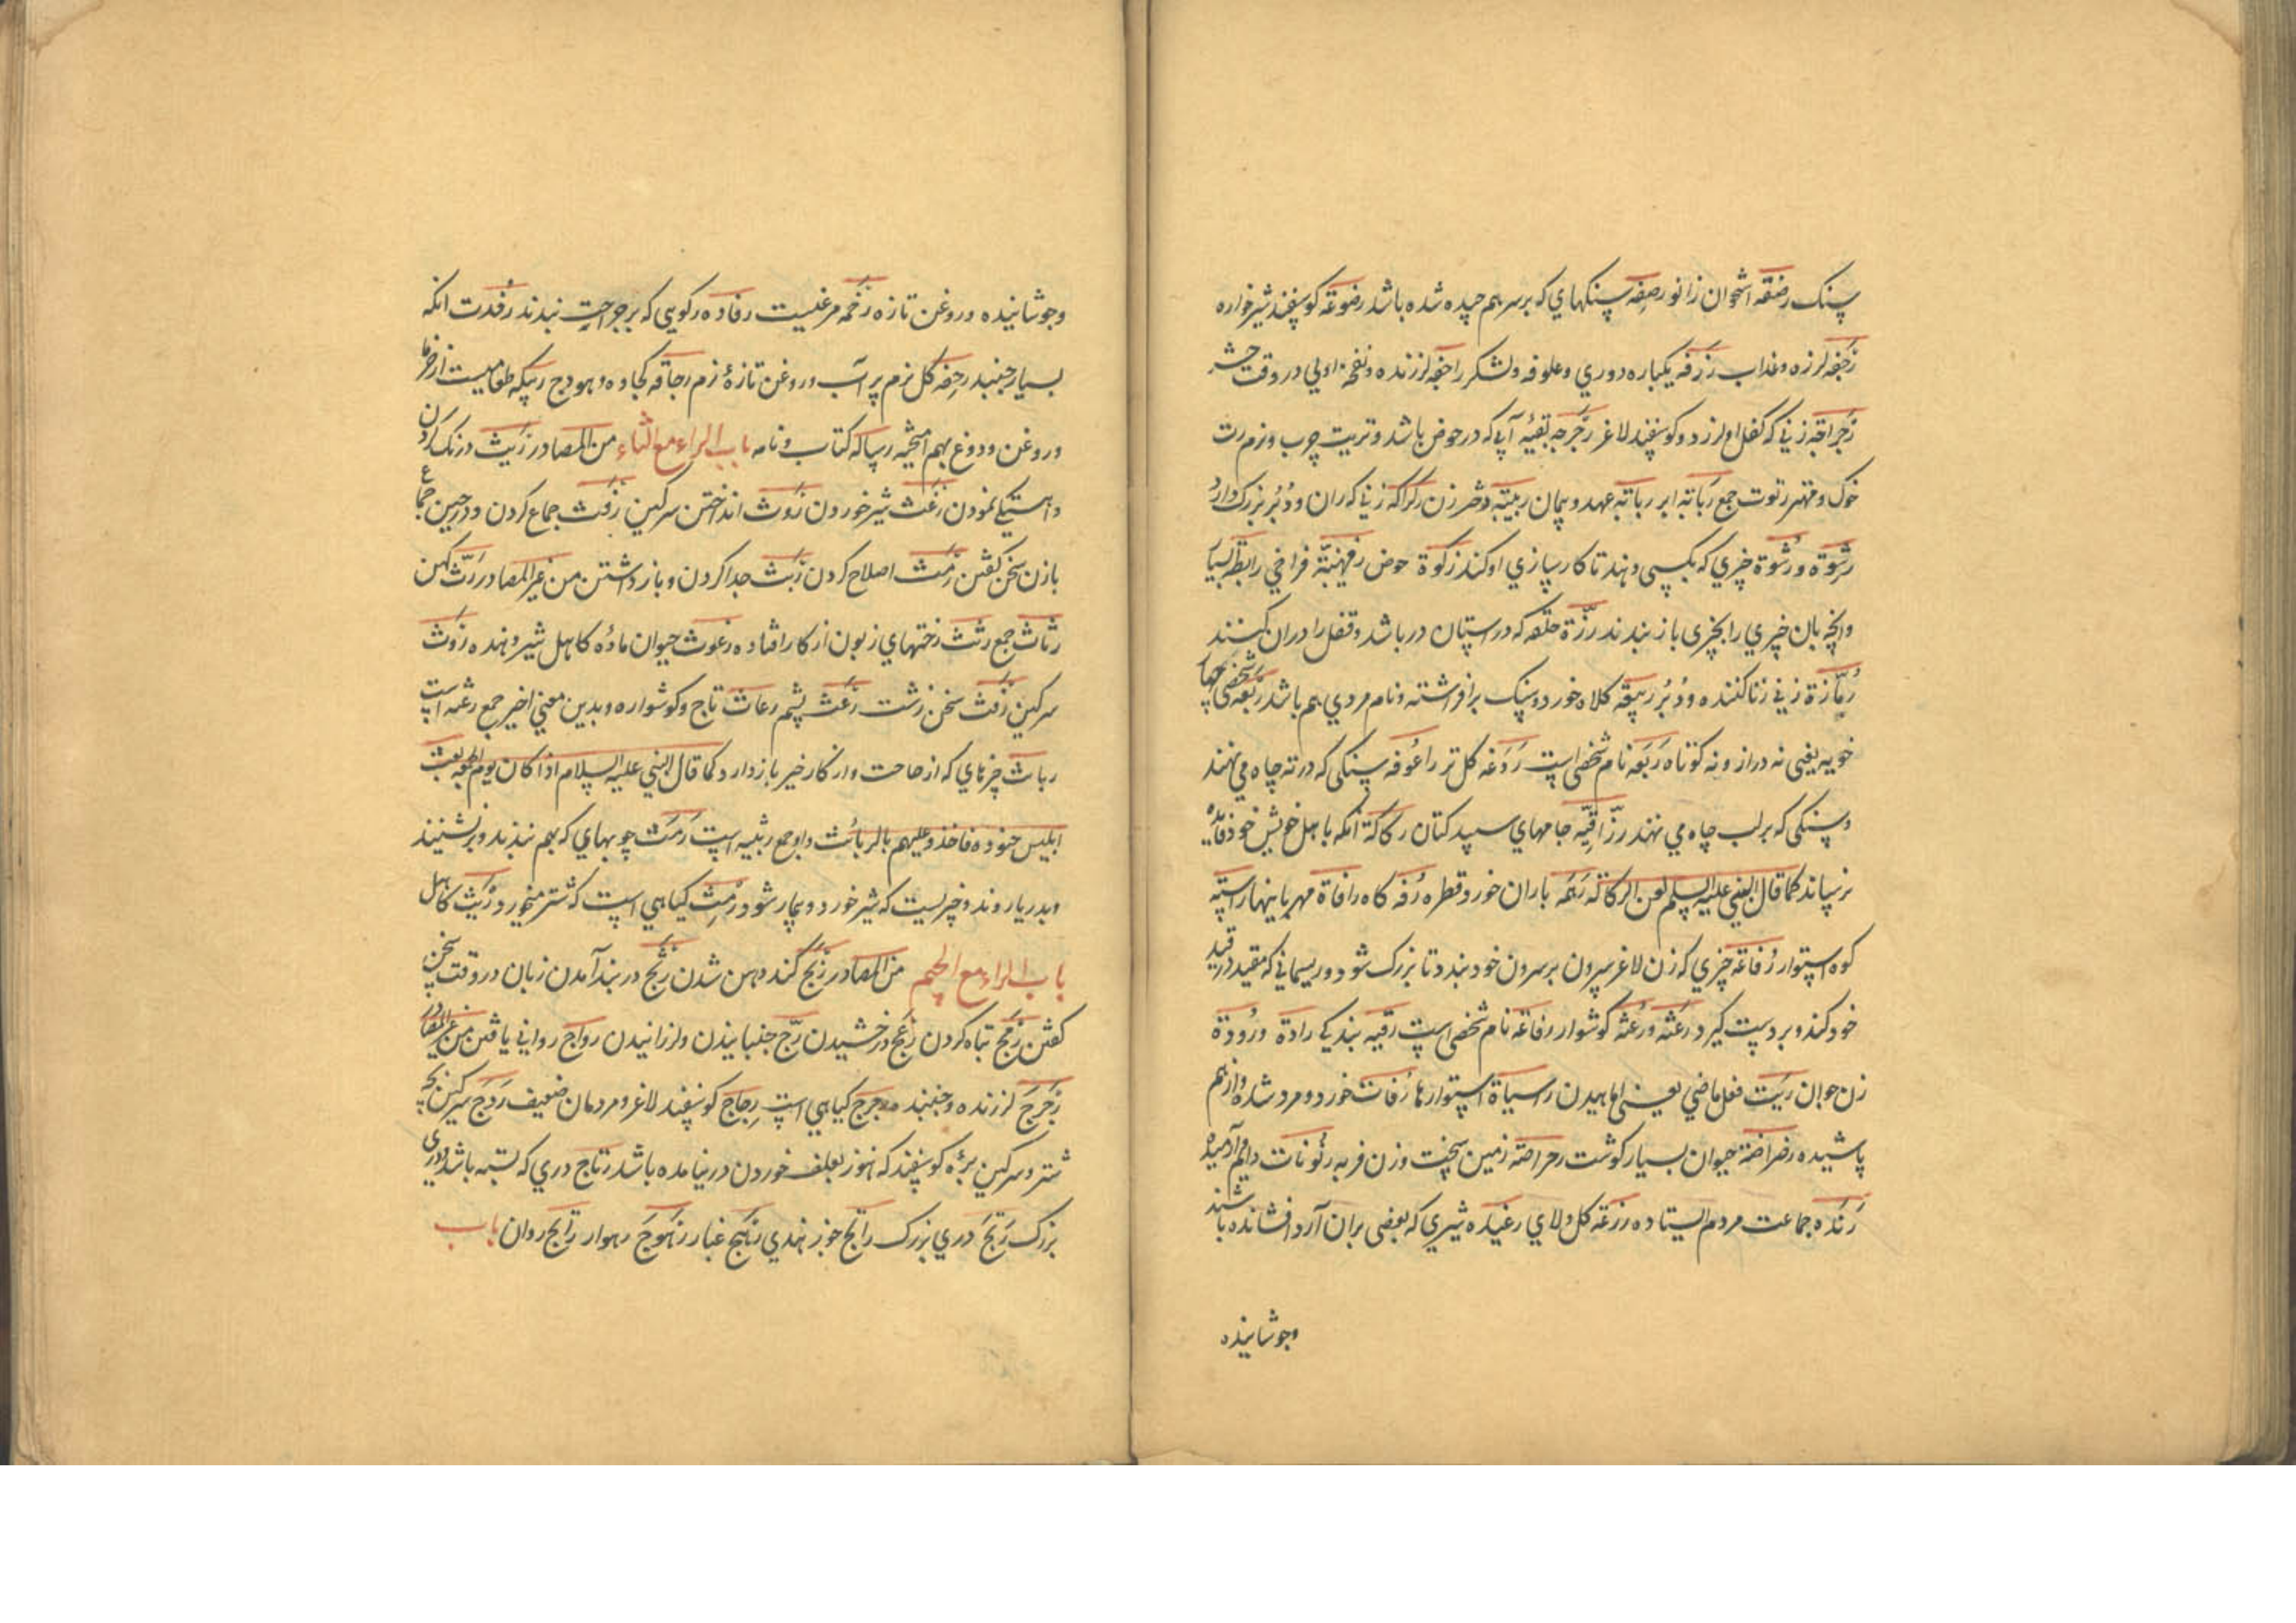 سنک رضفه استخوان زانو رصفه سنکهاي که بر سر هم چیده شده باشد رضوعه کوسفند شیرخواره
رجفه لرزه و عذاب رزفه یکباره دوري و علوفه و لشکر راجفه لرزنده و نفخهٔ اولي در وقت حشر
رجراجه زني که کفل او لرزد و کوسفند لاغر رجرجه بقیه آبي که در حوض باشد و تربت چرب و نرم رت
خوک و مهتر رتوت جمع ربابه ابر ربابه عهد و پیمان ربیبه دختر زن رکراکه زني که ران و دبر بزرک دارد
رشوة و رشوة چیزي که بکسي دهند تا کار سازي او کند رکوة حوض رفهنیة فراخي رابطه اسبا
و انچه بان چیزي را بچیزی باز بندند رزة حلقه که در استان در باشد و قفل را در ان کنند
رمازة زني زنا کننده و دبر رسقه کلاه خورد و سنک برافراشته و نام مردي هم باشد ربعه شخصي چها
خوبه یعني نه دراز و نه کوتاه ربعه نام شخصي است ردغه کل تر راعوفه سنکي که در ته چاه مي نهند
و سنکي که بر لب چاه مي نهند رزاقیه جامهاي سپید کتان رکاکة انکه با اهل خویش خود فائده
نرساند کما قال النبي علیه السلم لعن الرکاکة رهمه باران خورد قطره رفه کاه رافاة مهربانیها راسیه
کوه استوار رفاعه چیزي که زن لاغر سرون بر سرون خود بندد تا بزرک شود و ریسماني که مقید در قید
خود کند و بر دست کیرد رعثه و رعثه کوشوار رفاعه نام شخصي است رقیه بندکي رادة و رودة
زن جوان ریت فعل ماضي یعنی راسیاة استوارها رفات خورد و مرد شده و از هم
پاشیده رضراضة حیوان بسیار کوشت رحراصه زمین سخت و زن فربه
رنده جماعت مردم ایستاده رزغه کل و لاي رغیده شیري که بعضي بران آرد افشانده باشند
وجوشانیده
وجوشانیده و روغن تازه رخمه مرغیست رفاده رکویي که بر جراحت بندند رفدت انکه
بسیار جنبد رخفه کل نرم پر آب و روغن تازهٔ نرم رجاقه کجاوه و هودج ربیکه طعامیست از خرما
و روغن و دوغ بهم امیخته رساله کتاب و نامه باب الراء مع الثاء من المصادر ریث درنک کردن
و اهستکي نمودن رغث شیر خوردن روث انداختن سرکین رفث جماع کردن و در حین جماع
با زن سخن کفتن رمث اصلاح کردن ربث جدا کردن و باز داشتن من غیر المصادر رث کهن
رثاث جمع رثث رختهاي زبون از کار افتاده رغوث حیوان مادهٔ کاهل شیر دهنده روث
سرکین رفث سخن زشت رعث پشم رعاث تاج و کوشواره و بدین معني اخیر جمع رعثه است
رباث چیزهاي که از حاجت و از کار خیر باز دارد کما قال النبي علیه السلام اذا کان یوم الجمعه بعث
ابلیس جنوده فاخذوعلیهم بالربائث و او جمع ربیثه است رمث چوبهاي که بهم بندند و بر نشینند
و بدریا روند و چیزیست که شیر خورد و بیمار شود رمث کیاهي است که شتر میخورد ریث کاهل
باب الراء مع الجیم من المصادر ربج کنده دهن شدن رتج در بند آمدن زبان در وقت سخن
کفتن رمج تباه کردن رعج درخشیدن رج جنبانیدن و لرزانیدن رواج رواني یافتن من غیر المصادر
رجرج لرزنده و جنبنده رجرج کیاهي است رجاج کوسفند لاغر و مردمان ضعیف ردج سرکین بچه
شتر و سرکین برهٔ کوسفند که هنوز بعلف خوردن در نیامده باشد رتاج دري که بسته باشد و دری
بزرک رتج دري بزرک رانج جوز هندي رهج غبار رهوج رهوار رایج روان باب